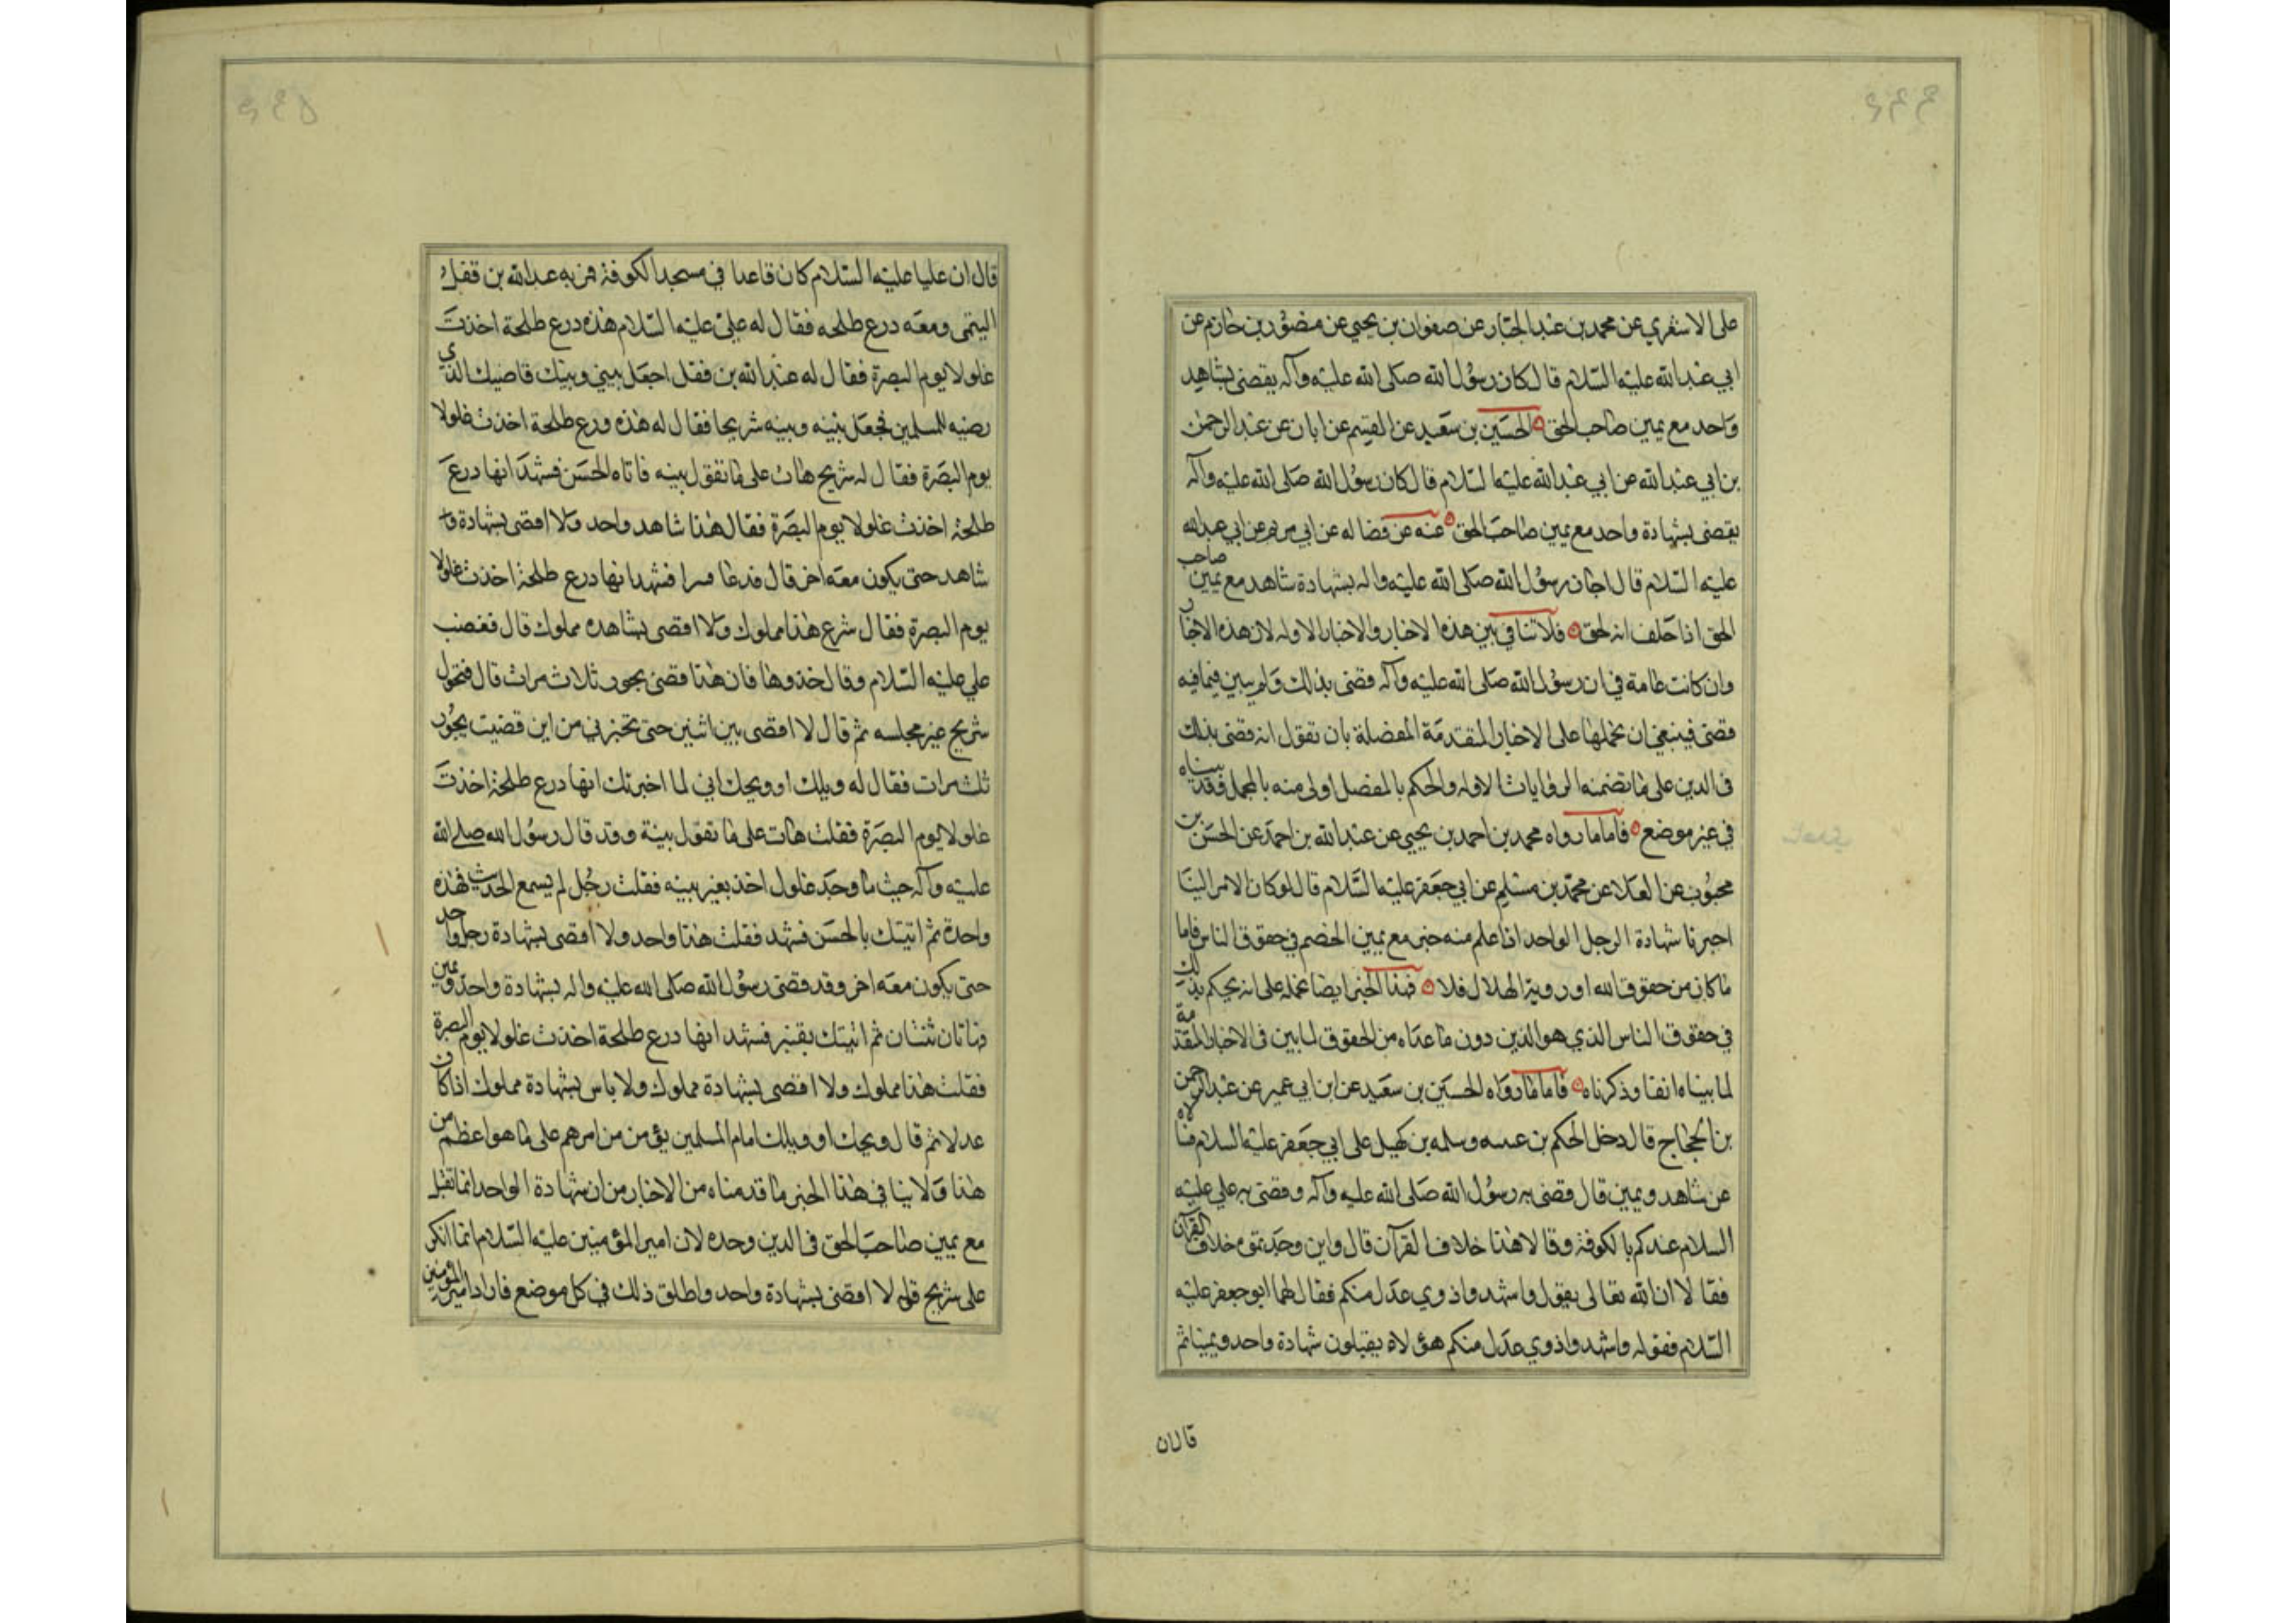 على الاشعري عن محمد بن عبد الجبار عن صفوان بن يحيي عن منصور بن حازم عن
ابي عبد الله عليه السلام قال كان رسول الله صلى الله عليه وآله يقضى بشاهد
واحد مع يمين صاحب الحق الحسين بن سعيد عن القسم عن ابان عن عبد الرحمن
بن ابي عبد الله عن ابي عبد الله عليه السلام قال كان رسول الله صلى الله عليه وآله
يقضى بشهادة واحد مع يمين صاحب الحق عنه عن فضاله عن ابي مريم عن ابي عبد الله
عليه السلام قال اجاز رسول الله صلى الله عليه واله بشهادة شاهد مع يمين صاحب
الحق اذا حلف انه لحق فلا تنافي بين هذه الاخبار والاخبار الاوله لان هذه الاخبار
وان كانت عامة في ان رسول الله صلى الله عليه وآله قضى بذلك ولم يبين فيما فيه
قضى فينبغي ان نحملها على الاخبار المتقدمة المفصلة بان نقول انه قضى بذلك
في الدين على ما تضمنه الروايات الاوله والحكم بالمفصل اولى منه بالمجمل وقد بيناه
في غير موضع فاما ما رواه محمد بن احمد بن يحيي عن عبد الله بن احمد عن الحسن بن
محبوب عن العلا عن محمد بن مسلم عن ابي جعفر عليه السلام قال لو كان الامر الينا
اجزنا شهادة الرجل الواحد اذا علم منه خير مع يمين الخصم في حقوق الناس فاما
ما كان من حقوق الله او روية الهلال فلا فهذا الخبر ايضا نحمله على انه يحكم بذلك
في حقوق الناس الذي هو الدين دون ما عداه من الحقوق لما بين في الاخبار المتقدمة
لما بيناه انفا وذكرناه فاما ما رواه الحسين بن سعيد عن ابن ابي عمير عن عبد الرحمن
بن الحجاج قال دخل الحكم بن عسه وسلمه بن كهيل على ابي جعفر عليه السلام فسالاه
عن شاهد ويمين قال قضى به رسول الله صلى الله عليه وآله وقضى به علي عليه
السلام عندكم بالكوفة وقالا هذا خلاف القرآن قال واين وجدتموه خلاف القرآن
فقالا ان الله تعالى يقول واشهدوا ذوي عدل منكم فقال لهما ابو جعفر عليه
السلام فقوله واشهدوا ذوي عدل منكم هو لا يقبلون شهادة واحد ويمينا ثم
قال ان
قال ان عليا عليه السلام كان قاعدا في مسجد الكوفة فمر به عبد الله بن قفل
التيمى ومعه درع طلحه فقال له علي عليه السلام هذه درع طلحة اخذت
غلولا يوم البصرة فقال له عبد الله بن قفل اجعل بيني وبينك قاضيك الذي
رضيته للمسلمين فجعل بينه وبينه شريحا فقال له هذه درع طلحة اخذت غلولا
يوم البصرة فقال له شريح هات على ما تقول بينه فاتاه الحسن فشهد انها درع
طلحة اخذت غلولا يوم البصرة فقال هذا شاهد واحد ولا اقضى بشهادة
شاهد حتى يكون معه اخر قال فدعا فشهد انها درع طلحة اخذت غلولا
يوم البصرة فقال هذا مملوك ولا اقضى بشاهده مملوك قال فغضب
علي عليه السلام وقال خذوها فان هذا قضى بجور ثلاث مرات قال فتحول
شريح عن مجلسه ثم قال لا اقضى بين اثنين حتى تخبرني من اين قضيت بجور
ثلث مرات فقال له ويلك او ويحك اني لما اخبرتك انها درع طلحة اخذت
غلولا يوم البصرة فقلت هات على ما تقول بينة وقد قال رسول الله صلى الله
عليه وآله حيث ما وجد غلول اخذ بغير بينه فقلت رجل لم يسمع الحديث فهذه
واحدة ثم اتيتك بالحسن فشهد فقلت هذا واحد ولا اقضى بشهادة رجل واحد
حتى يكون معه اخر وقد قضى رسول الله صلى الله عليه واله بشهادة واحد ويمين
فهاتان ثنتان ثم اتيتك بقنبر فشهد انها درع طلحة اخذت غلولا يوم البصرة
فقلت هذا مملوك ولا اقضى بشهادة مملوك ولا باس بشهادة مملوك اذا كان
عدلا ثم قال ويحك او ويلك امام المسلمين يؤمن من امرهم على ما هو اعظم من
هذا ولا ينافي هذا الخبر ما قدمناه من الاخبار من ان شهادة الواحد انما تقبل
مع يمين صاحب الحق في الدين وحده لان امير المؤمنين عليه السلام انما انكر
على شريح قوله لا اقضى بشهادة واحد واطلق ذلك في كل موضع فاراد امير المؤمنين